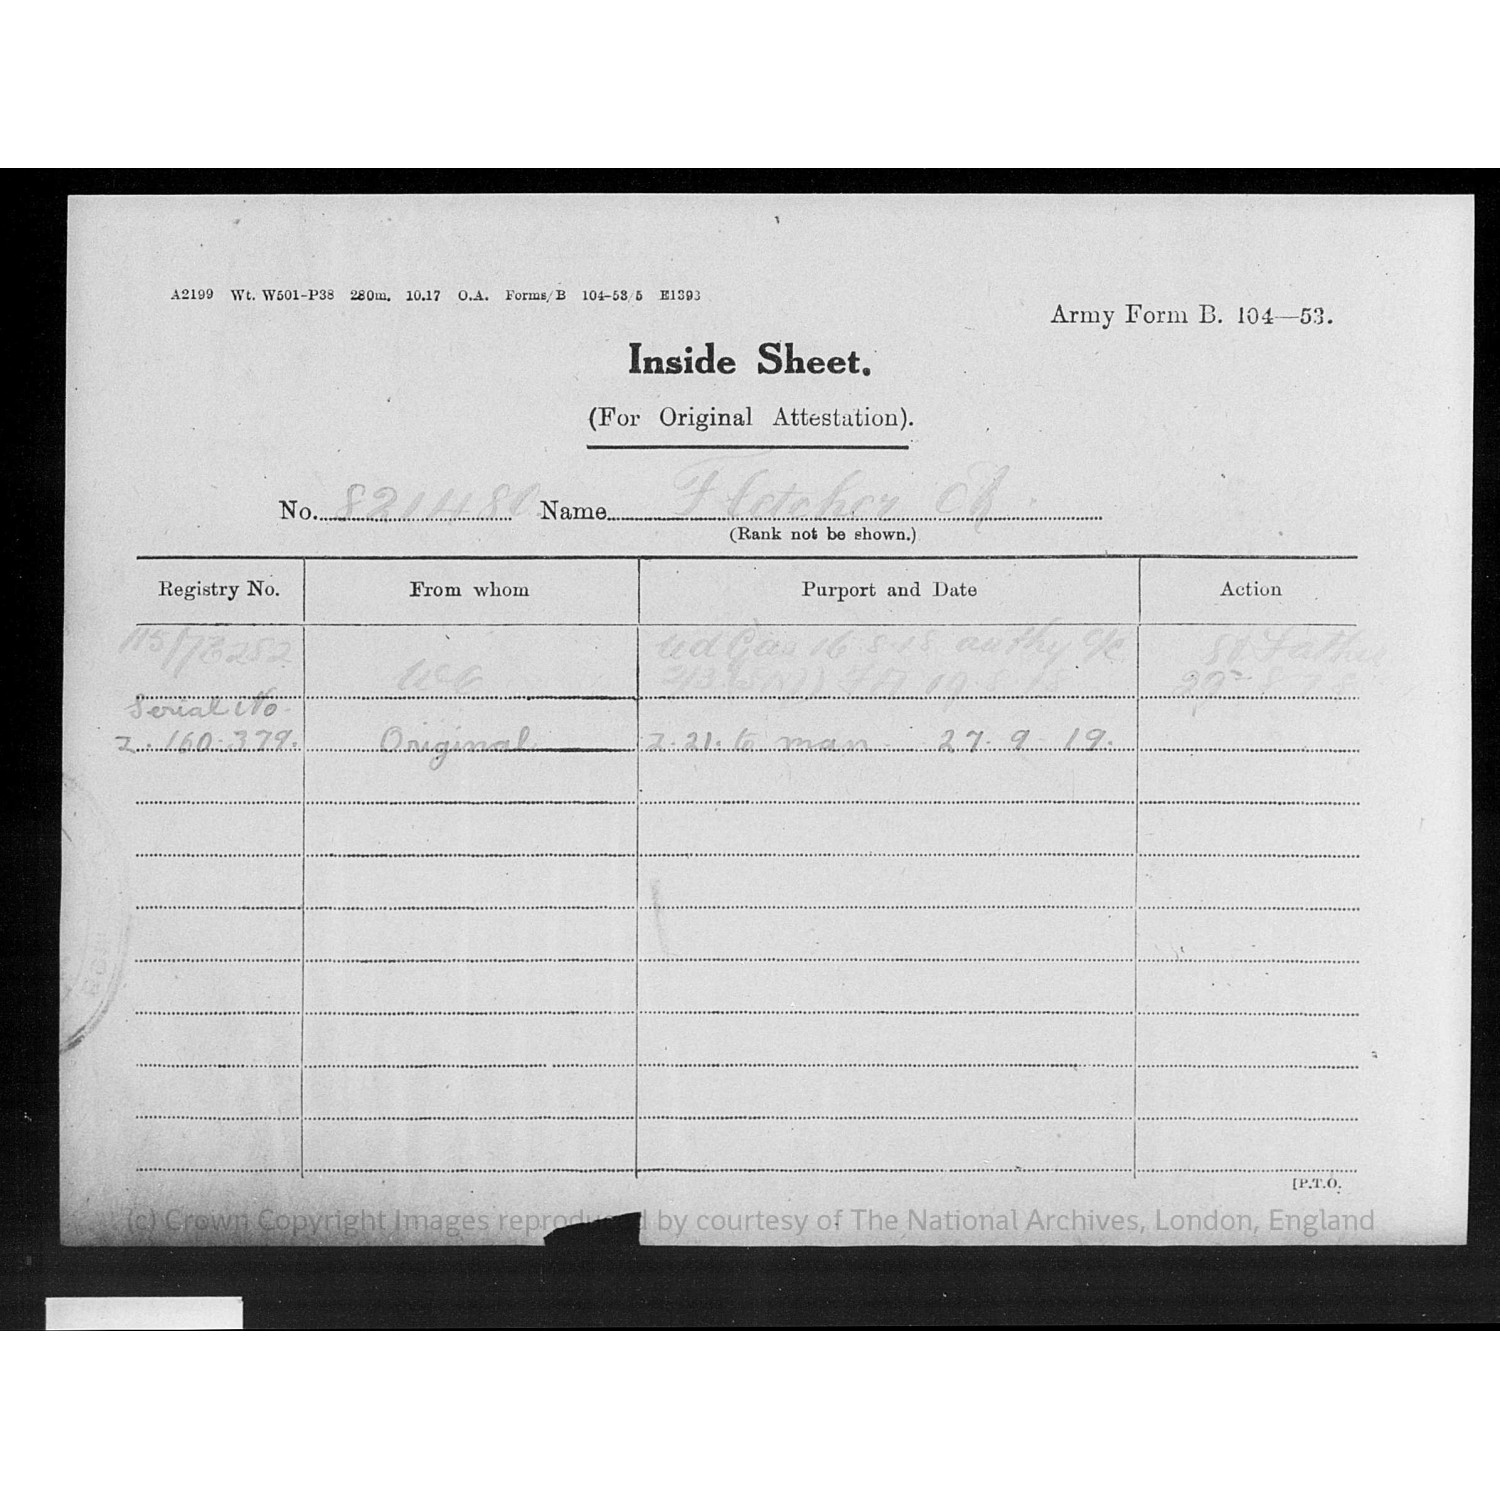 A2199 Wt. W501-P38 280m. 10.17 O.A. Forms/B 104-53/5 E1393
Army Form B. 104—53.
Inside Sheet.
(For Original Attestation).
No. 821480 Name Fletcher
(Rank not be shown.)
Registry No. From whom Purport and Date Action
Gas 16 8 18 authy
Serial No.
Z. 160.379. Original Z.21. to man 27.9.19.
[P.T.O.
(c) Crown Copyright Images reproduced by courtesy of The National Archives, London, England